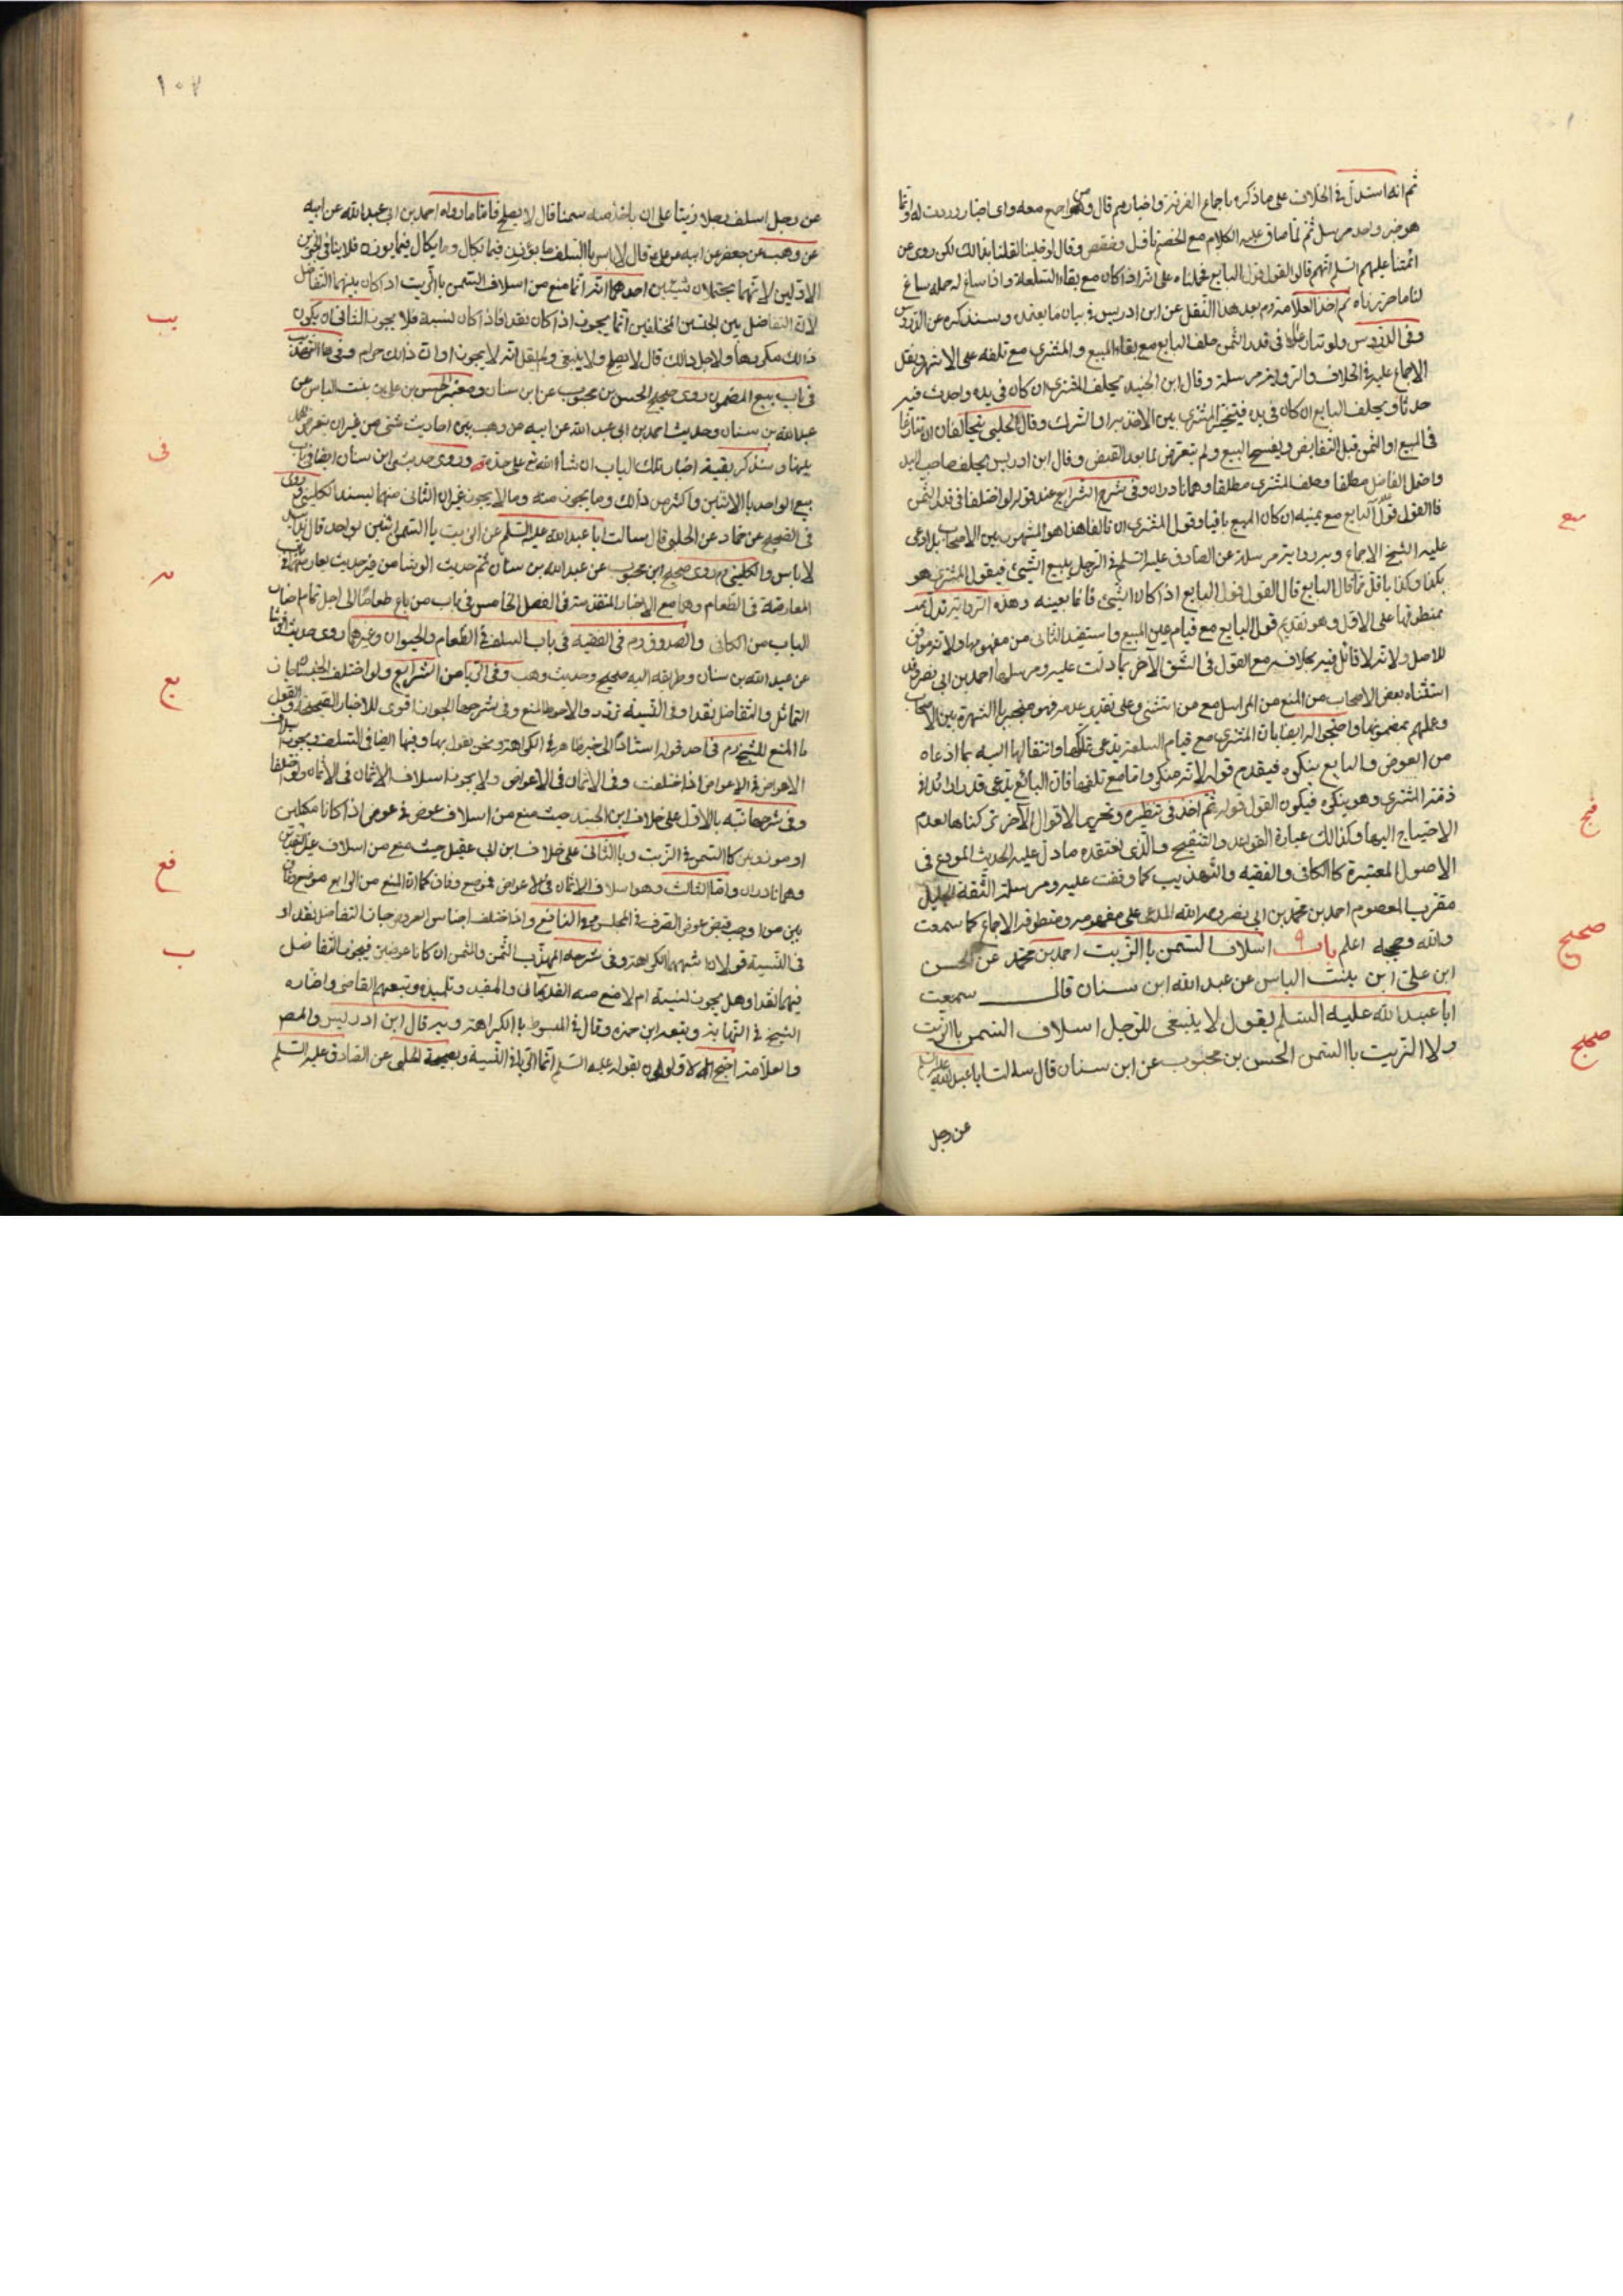 ثم انه استدل في الخلاف على ما ذكره باجماع الفرقة واخبارهم قال ومن راجع معه واي اخبار وردت له وانما
هو خبر واحد مرسل ثم لما ضاق عليه الكلام مع الخصم وقال
ائمتنا عليهم السلم انهم قالوا القول قول البايع حملناه على انه اذا كان مع بقاء السلعة واذا ساغ له حمله ساغ
لنا ما حررناه ثم اخذ العلامة ره بعد هذا النقل عن ابن ادريس في بيان ما يعتمد وسنذكره عن الدروس
وفي الدروس ولو تنازعا في قدر الثمن حلف البايع مع بقاء المبيع والمشتري مع تلفه على الاشهر ونقل
الاجماع عليه في الخلاف والرواية مرسلة وقال ابن الجنيد يحلف المشتري ان كان في يده واحدث فيه
حدثا ويحلف البايع ان كان في يده فيتخير المشتري بين الاخذ به او الترك وقال الحلبي يتحالفان ان تنازعا
في المبيع او الثمن قبل التقابض ويفسخ البيع ولم يتعرض لما بعد القبض وقال ابن ادريس يحلف صاحب اليد
واحتمل الفاضل مطلقا وحلف المشتري مطلقا وهما نادران وفي شرح الشرايع عند قوله لو اختلفا في قدر الثمن
فالقول قول البايع مع يمينه ان كان المبيع باقيا وقول المشتري ان تالفا هذا هو المشهور بين الاصحاب بل ادعى
عليه الشيخ الاجماع وبه رواية مرسلة عن الصادق عليه السلم في الرجل يبيع الشيئ فيقول المشتري هو
بكذا وكذا باقل مما قال البايع قال القول قول البايع اذا كان الشيئ قائما بعينه وهذه الرواية تدل
بمنطوقها على الاول وهو تقديم قول البايع مع قيام عين المبيع واستفيد الثاني من مفهومها ولانه موافق
للاصل ولانه لا قائل فيه بخلافه مع القول في الشق الآخر بما دلت عليه ومرسلها احمد بن ابي نصر وقد
استثناه بعض الاصحاب من المنع من المراسل مع من استثنى وعلى تقدير عدمه فهو منجبر باالشهرة بين الاصحاب
وعملهم بمضمونها واحتجوا له ايضا بان المشتري مع قيام السلعة يدعى تملكها وانتقالها اليه بما ادعاه
من العوض والبايع ينكره فيقدم قوله لانه منكر واما مع تلفها فان البايع يدعى قدرا زائدا في
ذمة المشتري وهو ينكره فيكون القول قوله ثم اخذ في تنظيره وتحرير الاقوال الآخر تركناها لعدم
الاحتياج اليها وكذالك عبارة القواعد والتنقيح والذي نعتقده ما دل عليه الحديث المودع في
الاصول المعتبرة كالكافي والفقيه والتهذيب كما وقفت عليه ومرسلة الثقة الجليل
مقرب المعصوم احمد بن محمد بن ابي نصر رحمه الله المدعى على مفهومه ومنطوقه الاجماع كما سمعت
والله وحججه اعلم باب ٩ اسلاف السمن باالزيت احمد بن محمد عن الحسن
ابن علي ابن بنت الياس عن عبد الله ابن سنان قال سمعت
ابا عبد الله عليه السلم يقول لا ينبغى للرجل اسلاف السمن باالزيت
ولا الزيت باالسمن الحسن بن محبوب عن ابن سنان قال سالت ابا عبد الله عليه السلم
عن رجل
سع
فتح
صحيح
صحيح
١٠٧
عن رجل اسلف رجلا زيتا على ان ياخذ منه سمنا قال لا يصلح فاما ما رواه احمد بن ابي عبد الله عن ابيه
عن وهب عن جعفر عن ابيه عن علي قال لا باس باالسلف ما يوزن فيما يكال وما يكال فيما يوزن فلا ينافي الخبرين
الاولين لانهما يحتملان شيئين احدهما انه انما منع من اسلاف السمن باالزيت اذا كان بينهما التفاضل
لان التفاضل بين الجنسين المختلفين انما يجوز اذا كان نقدا فاذا كان نسية فلا يجوز الثاني ان يكون
ذالك مكروها ولاجل ذالك قال لا يصلح ولا ينبغى ولم يقل انه لا يجوز او ان ذالك حرام وفي
في باب بيع المضمون روى صحيح الحسن بن محبوب عن ابن سنان ومعتبر الحسن بن علي بن بنت الياس عن
عبد الله بن سنان وحديث احمد بن ابي عبد الله عن ابيه عن وهب بين احاديث شتى من غير ان يتعرض
عليها وسنذكر بقية اخبار تلك الباب ان شاء الله تع على حدة وروى حديثي ابن سنان ايضا في باب
بيع الواحد باالاثنين واكثر من ذالك وما يجوز منه وما لا يجوز غير ان الثاني منهما بسند الكليني وروى
في الصحيح عن حماد عن الحلبي قال سالت ابا عبد الله عليه السلم عن الزيت باالسمن اثنين بواحد قال يدا بيد
لا باس والكليني ره روى صحيح ابن محبوب عن عبد الله بن سنان ثم حديث الوشا
المعارضة في الطعام وهما مع الاخبار المتقدمة في الفصل الخامس في باب من باع طعاما الى اجل تمام اخبار
الباب من الكافي والصدوق ره في الفقيه في باب السلف في الطعام والحيوان وغيرهما روى حديث الوشا
عن عبد الله بن سنان وطريقه اليه صحيح وحديث وهب وفي الربا من الشرايع ولو اختلف الجنسان جاز
التماثل والتفاضل نقدا وفي النسية تردد والاحوط المنع وفي شرحها الجواز اقوى للاخبار الصحيحة والقول
باالمنع للشيخ ره في احد قوليه استنادا الى خبر ظاهر في الكراهة ونحن نقول بها وفيها ايضا في السلف ويجوز اسلاف
الاعواض في الاعواض اذا اختلفت وفي الاثمان في الاعواض ولا يجوز اسلاف الاثمان في الاثمان ولو اختلفا
وفي شرحها نبه بالاول على خلاف ابن الجنيد حيث منع من اسلاف عوض في عوض اذا كانا مكيلين
او موزونين كاالسمن في الزيت وباالثاني على خلاف ابن ابي عقيل حيث منع من اسلاف غير النقدين
وهما نادران واما الثالث وهو اسلاف الاثمان في الاعواض فموضع وفاق كما ان المنع من الرابع موضع وفاق
بين من اوجب قبض عوض الصرف في المجلس وفي النافع واذا اختلف اجناس العروض جاز التفاضل نقدا و
في النسية قولان اشبههما الكراهة وفي شرحه المهذب الثمن والمثمن ان كانا عوضين فيجوز التفاضل
فيهما نقدا وهل يجوز نسية ام لا منع منه القديمان والمفيد وتلميذه وتبعهم القاضي واختاره
الشيخ في النهاية وتبعه ابن حمزه وقال في المبسوط باالكراهة وبه قال ابن ادريس والمصـ
والعلامة احتج الاولون بقوله عليه السلم انما الربا في النسية وبصحيحة الحلبي عن الصادق عليه السلم
يب
في
يه
يع
فع
ب